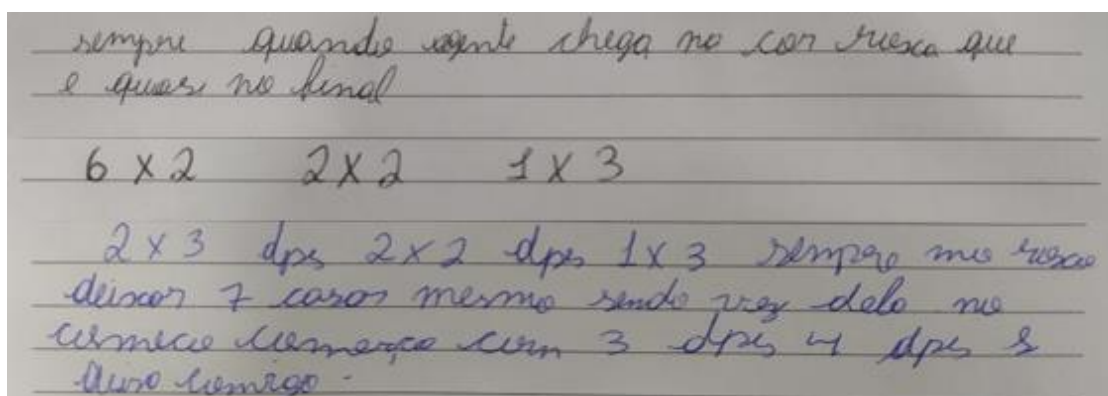 sempre quando agente chega na cor rosa que
e quase no final
6 x 2 2 x 2 1 x 3
2 x 3 dps 2 x 2 dps 1 x 3 sempre no rosa
deixar 7 casas mesmo sendo vez dela no
começo começa com 3 dps 4 dps
comigo.